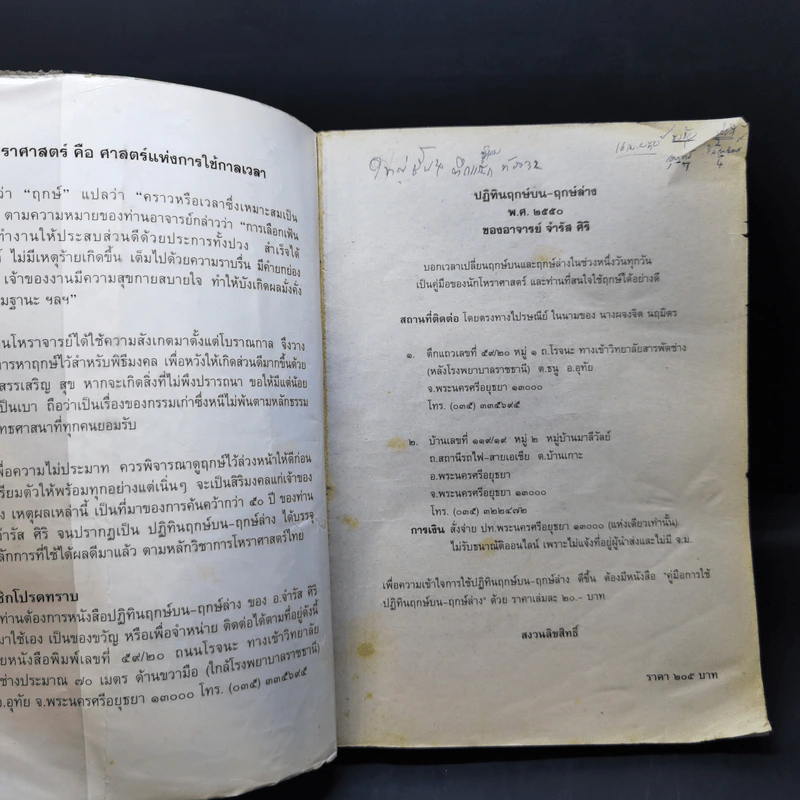 ราศาสตร์ คือ ศาสตร์แห่งการใช้กาลเวลา
ว่า “ฤกษ์” แปลว่า “คราวหรือเวลาซึ่งเหมาะสมเป็น
ตามความหมายของท่านอาจารย์กล่าวว่า “การเลือกเฟ้น
ทำงานให้ประสบส่วนดีด้วยประการทั้งปวง สำเร็จได้
ไม่มีเหตุร้ายเกิดขึ้น เต็มไปด้วยความราบรื่น มีคำยกย่อง
เจ้าของงานมีความสุขกายสบายใจ ทำให้บังเกิดผลมั่งคั่ง
มฐานะ ฯลฯ”
นโหราจารย์ได้ใช้ความสังเกตมาตั้งแต่โบราณกาล จึงวาง
ารหาฤกษ์ไว้สำหรับพิธีมงคล เพื่อหวังให้เกิดส่วนดีมากขึ้นด้วย
สรรเสริญ สุข หากจะเกิดสิ่งที่ไม่พึงปรารถนา ขอให้มีแต่น้อย
เป็นเบา ถือว่าเป็นเรื่องของกรรมเก่าซึ่งหนีไม่พ้นตามหลักธรรม
ทธศาสนาที่ทุกคนยอมรับ
พื่อความไม่ประมาท ควรพิจารณาดูฤกษ์ไว้ล่วงหน้าให้ดีก่อน
รียมตัวให้พร้อมทุกอย่างแต่เนิ่นๆ จะเป็นสิริมงคลแก่เจ้าของ
ง เหตุผลเหล่านี้ เป็นที่มาของการค้นคว้ากว่า ๕๐ ปี ของท่าน
จำรัส ศิริ จนปรากฏเป็น ปฏิทินฤกษ์บน-ฤกษ์ล่าง ได้บรรจุ
ลักการที่ใช้ได้ผลดีมาแล้ว ตามหลักวิชาการโหราศาสตร์ไทย
ชิกโปรดทราบ
ท่านต้องการหนังสือปฏิทินฤกษ์บน-ฤกษ์ล่าง ของ อ.จำรัส ศิริ
มาใช้เอง เป็นของขวัญ หรือเพื่อจำหน่าย ติดต่อได้ตามที่อยู่ดังนี้
ยหนังสือพิมพ์เลขที่ ๕๙/๒๐ ถนนโรจนะ ทางเข้าวิทยาลัย
ช่างประมาณ ๗๐ เมตร ด้านขวามือ (ใกล้โรงพยาบาลราชธานี)
อ.อุทัย จ.พระนครศรีอยุธยา ๑๓๐๐๐ โทร. (๐๓๕) ๓๓๕๖๙๕
ปฏิทินฤกษ์บน-ฤกษ์ล่าง
พ.ศ. ๒๕๕๐
ของอาจารย์ จำรัส ศิริ
บอกเวลาเปลี่ยนฤกษ์บนและฤกษ์ล่างในช่วงหนึ่งวันทุกวัน
เป็นคู่มือของนักโหราศาสตร์ และท่านที่สนใจใช้ฤกษ์ได้อย่างดี
สถานที่ติดต่อ โดยตรงทางไปรษณีย์ ในนามของ นางผจงจิต นฤมิตร
๑. ตึกแถวเลขที่ ๕๙/๒๐ หมู่ ๑ ถ.โรจนะ ทางเข้าวิทยาลัยสารพัดช่าง
(หลังโรงพยาบาลราชธานี) ต.ธนู อ.อุทัย
จ.พระนครศรีอยุธยา ๑๓๐๐๐
โทร. (๐๓๕) ๓๓๕๖๙๕
๒. บ้านเลขที่ ๑๑๙/๑๙ หมู่ ๒ หมู่บ้านมาลีวัลย์
ถ.สถานีรถไฟ-สายเอเซีย ต.บ้านเกาะ
อ.พระนครศรีอยุธยา
จ.พระนครศรีอยุธยา ๑๓๐๐๐
โทร. (๐๓๕) ๓๒๒๔๗๒
การเงิน สั่งจ่าย ปท.พระนครศรีอยุธยา ๑๓๐๐๐ (แห่งเดียวเท่านั้น)
ไม่รับธนาณัติออนไลน์ เพราะไม่แจ้งที่อยู่ผู้นำส่งและไม่มี จ.ม.
เพื่อความเข้าใจการใช้ปฏิทินฤกษ์บน-ฤกษ์ล่าง ดีขึ้น ต้องมีหนังสือ "คู่มือการใช้
ปฏิทินฤกษ์บน-ฤกษ์ล่าง" ด้วย ราคาเล่มละ ๒๐.- บาท
สงวนลิขสิทธิ์
ราคา ๒๐๕ บาท